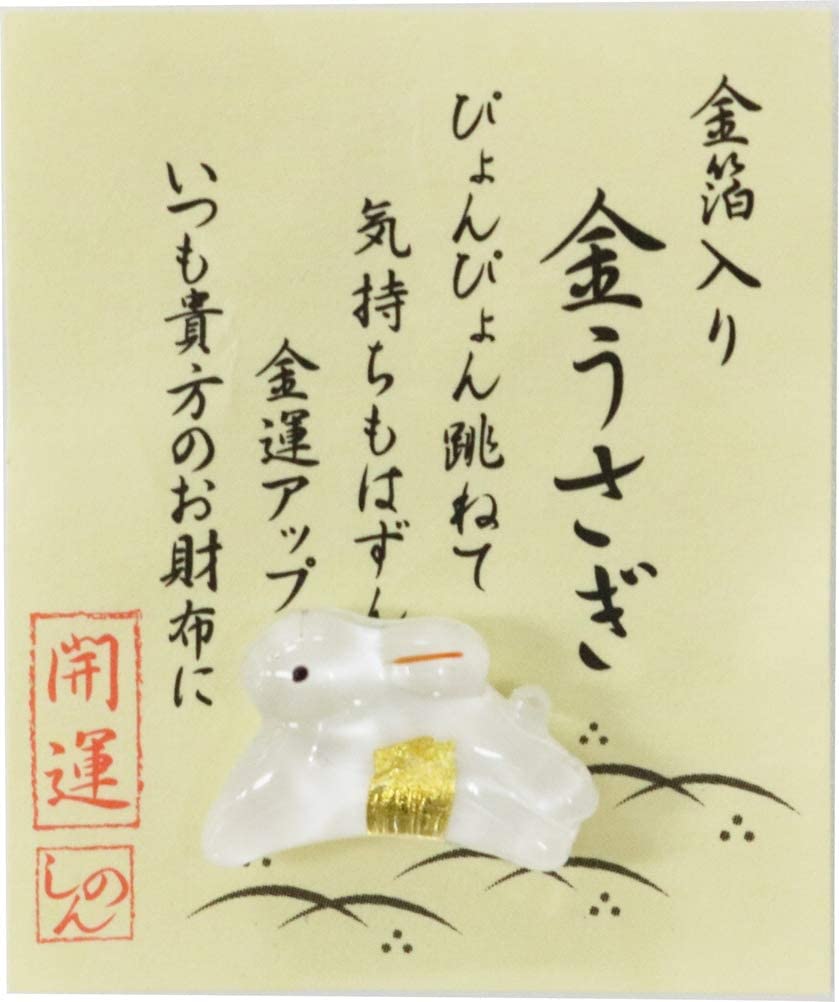 金箔入り
金うさぎ
ぴょんぴょん跳ねて
気持ちもはずん
金運アップ
いつも貴方のお財布に
開運
しのん